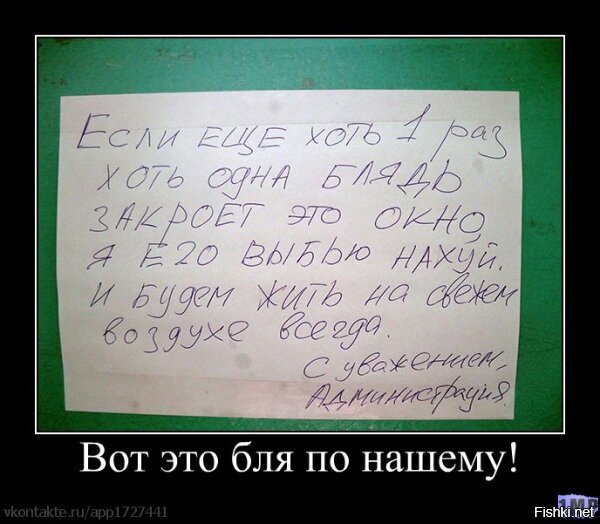 Если ещё хоть 1 раз
хоть одна блядь
закроет это окно,
я его выбью нахуй.
и будем жить на свежем
воздухе всегда.
С уважением,
Администрация.
Вот это бля по нашему!
vkontakte.ru/app1727441
Fishki.net